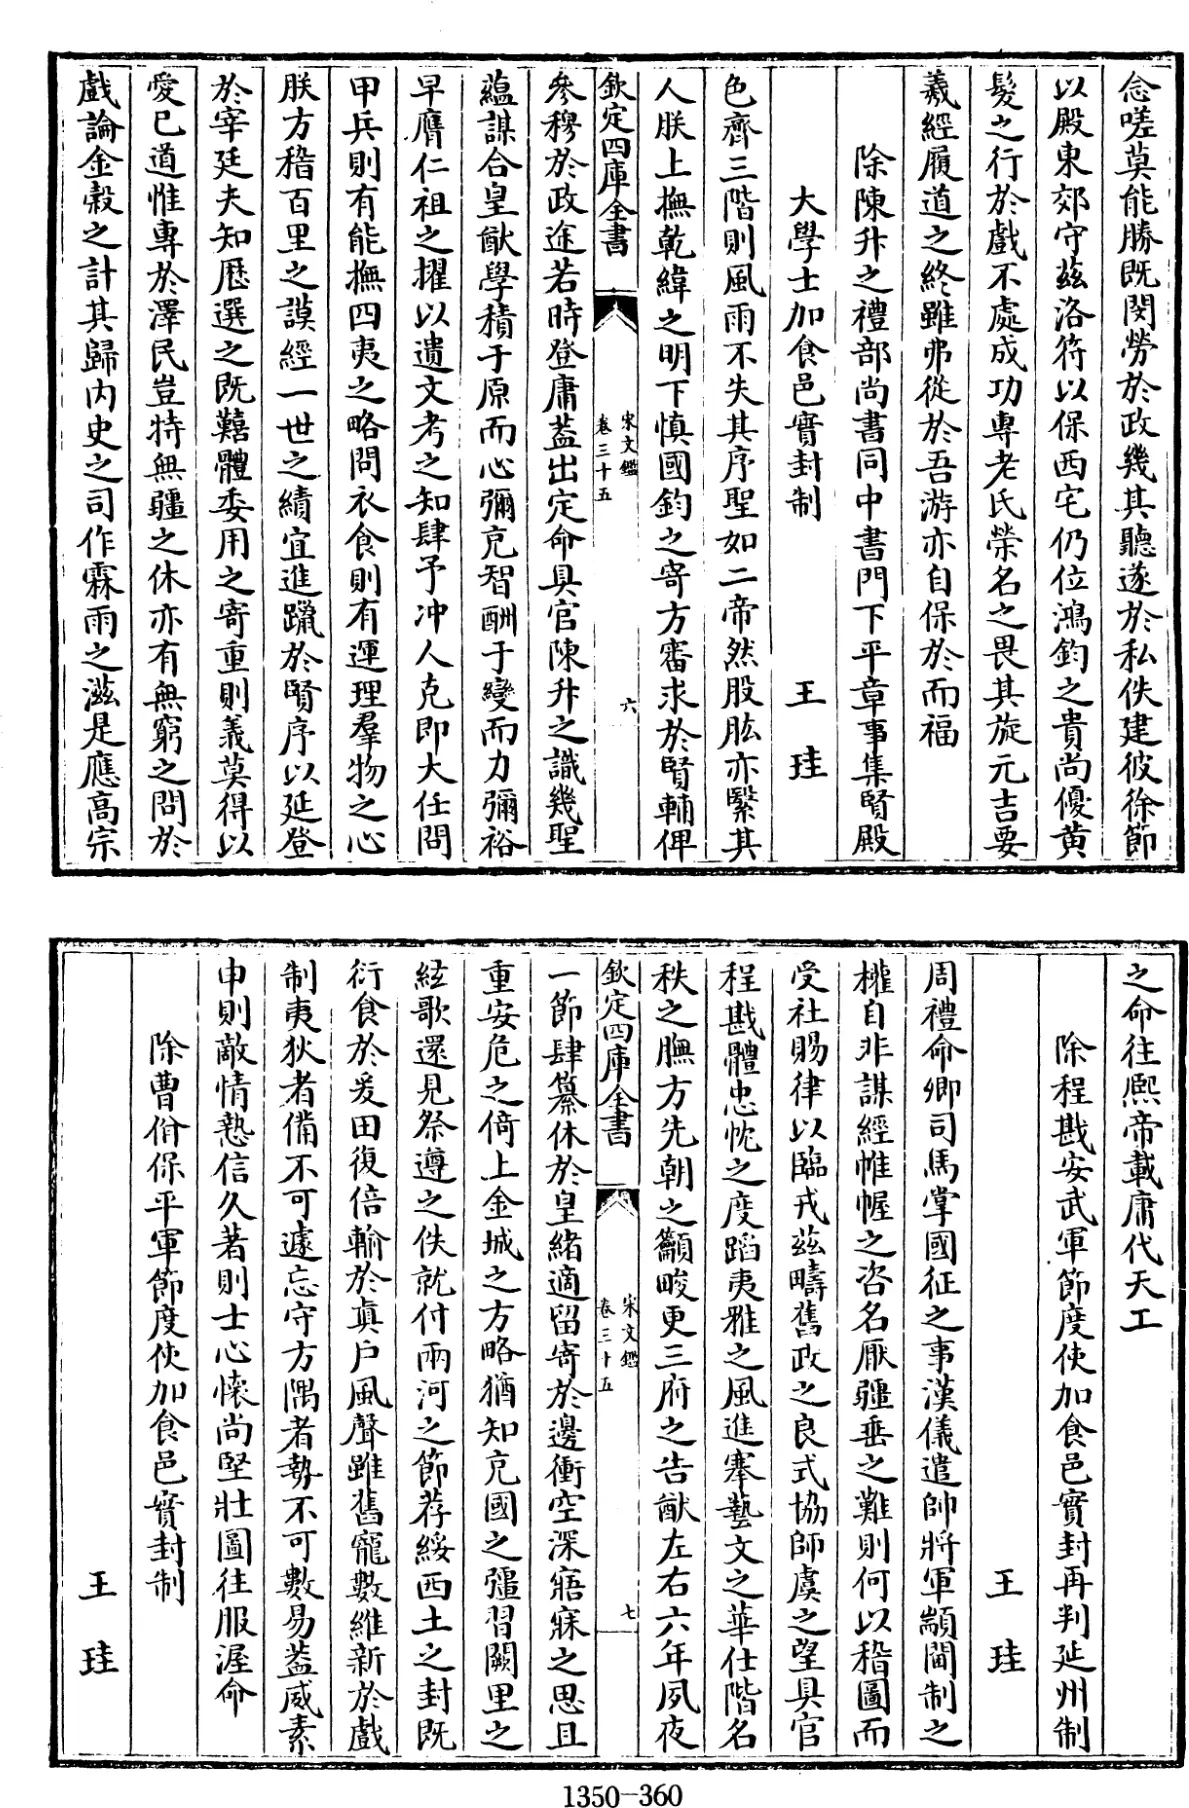 念嗟莫能勝既閔勞於政幾其聽遂於私佚建彼徐節
以殿東郊守兹洛符以保西宅仍位鴻鈞之貴尚優黄
髮之行於戲不處成功專老氏榮名之畏其旋元吉要
羲經履道之終雖弗從於吾游亦自保於而福
除陳升之禮部尚書同中書門下平章事集賢殿
大學士加食邑實封制
王珪
色齊三階則風雨不失其序聖如二帝然股肱亦緊其
人朕上撫乾緯之明下慎國鈞之寄方審求於賢輔俾
欽定四庫全書
宋文鑑
卷三十五
六
參穆於政途若時登庸葢出定命具官陳升之識幾聖
蘊謀合皇猷學積于原而心彌克智酬于變而力彌裕
早膺仁祖之擢以遺文考之知肆予冲人克即大任問
甲兵則有能撫四夷之略問衣食則有運理羣物之心
朕方稽百里之謨經一世之績宜進躐於賢序以延登
於宰廷夫知歴選之既囏體委用之寄重則義莫得以
愛已道惟專於澤民豈特無疆之休亦有無窮之問於
戲論金穀之計其歸内史之司作霖雨之滋是應高宗
之命往熙帝載庸代天工
除程戡安武軍節度使加食邑實封再判延州制
王珪
周禮命卿司馬掌國征之事漢儀遣帥將軍顓閫制之
權自非謀經帷幄之咨名厭疆垂之難則何以稽圖而
受社賜律以臨戎兹疇舊政之良式協師虞之望具官
程戡體忠忱之度蹈夷雅之風進搴藝文之華仕階名
秩之膴方先朝之籲畯更三府之告猷左右六年夙夜
欽定四庫全書
宋文鑑
卷三十五
七
一節肆纂休於皇緒適留寄於邊衝空深寤寐之思且
重安危之倚上金城之方略猶知充國之彊習闕里之
絃歌還見祭遵之佚就付兩河之節荐綏西土之封既
衍食於爰田復倍輸於真户風聲雖舊寵數維新於戲
制夷狄者備不可遽忘守方隅者勢不可數易葢威素
申則敵情慹信久著則士心懷尚堅壯圖往服渥命
除曹佾保平軍節度使加食邑實封制
王珪
1350-360